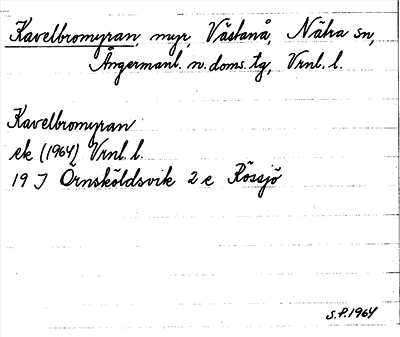 Kavelbromyran, myr, Västanå, Nätra sn,
Ångermanl. n. doms. tg, Vrnl. l.
Kavelbromyran
ek (1964) Vrnl. l.
19 J Örnsköldsvik 2 e Rössjö
S.P. 1964